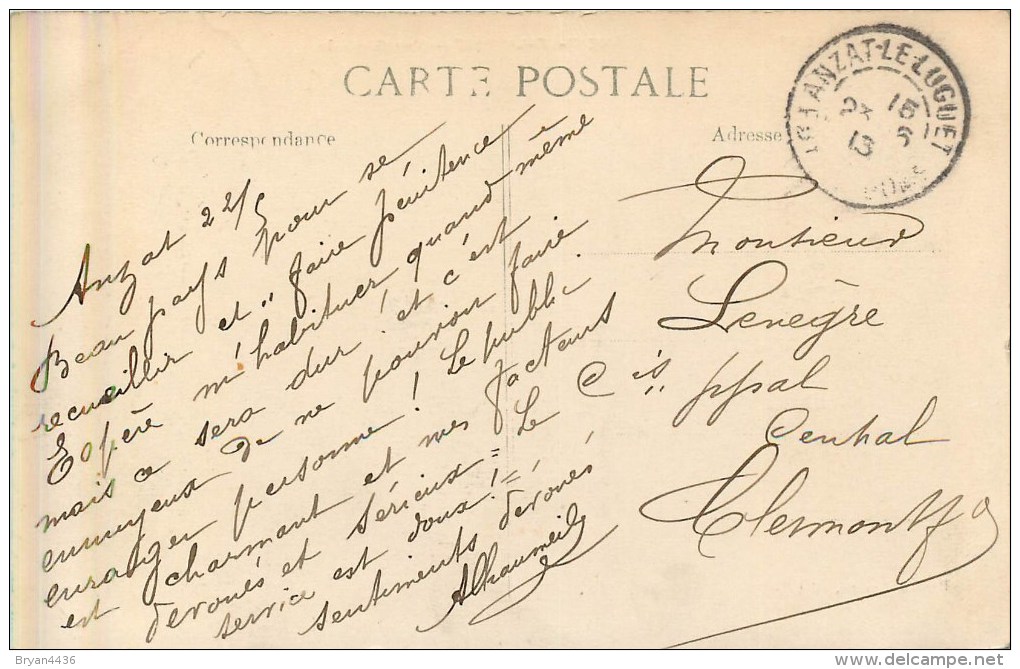 CARTE POSTALE
Correspondance
Adresse
ANZAT-LE-LUGUET
15
23 5
13
Anzat 22/5
Beau pays pour se
recueillir et "faire pénitence
Espère m'habituer quand même
mais ce sera dur! et c'est
ennuyeux de ne pouvoir faire
enrager personne! Le public
est charmant et mes facteurs
dévoués et sérieux = Le
service est doux! =
sentiments dévoués
Monsieur
Lenègre
Cis ppal
Central
Clermont Fd
Bryan4436
delcampe.net